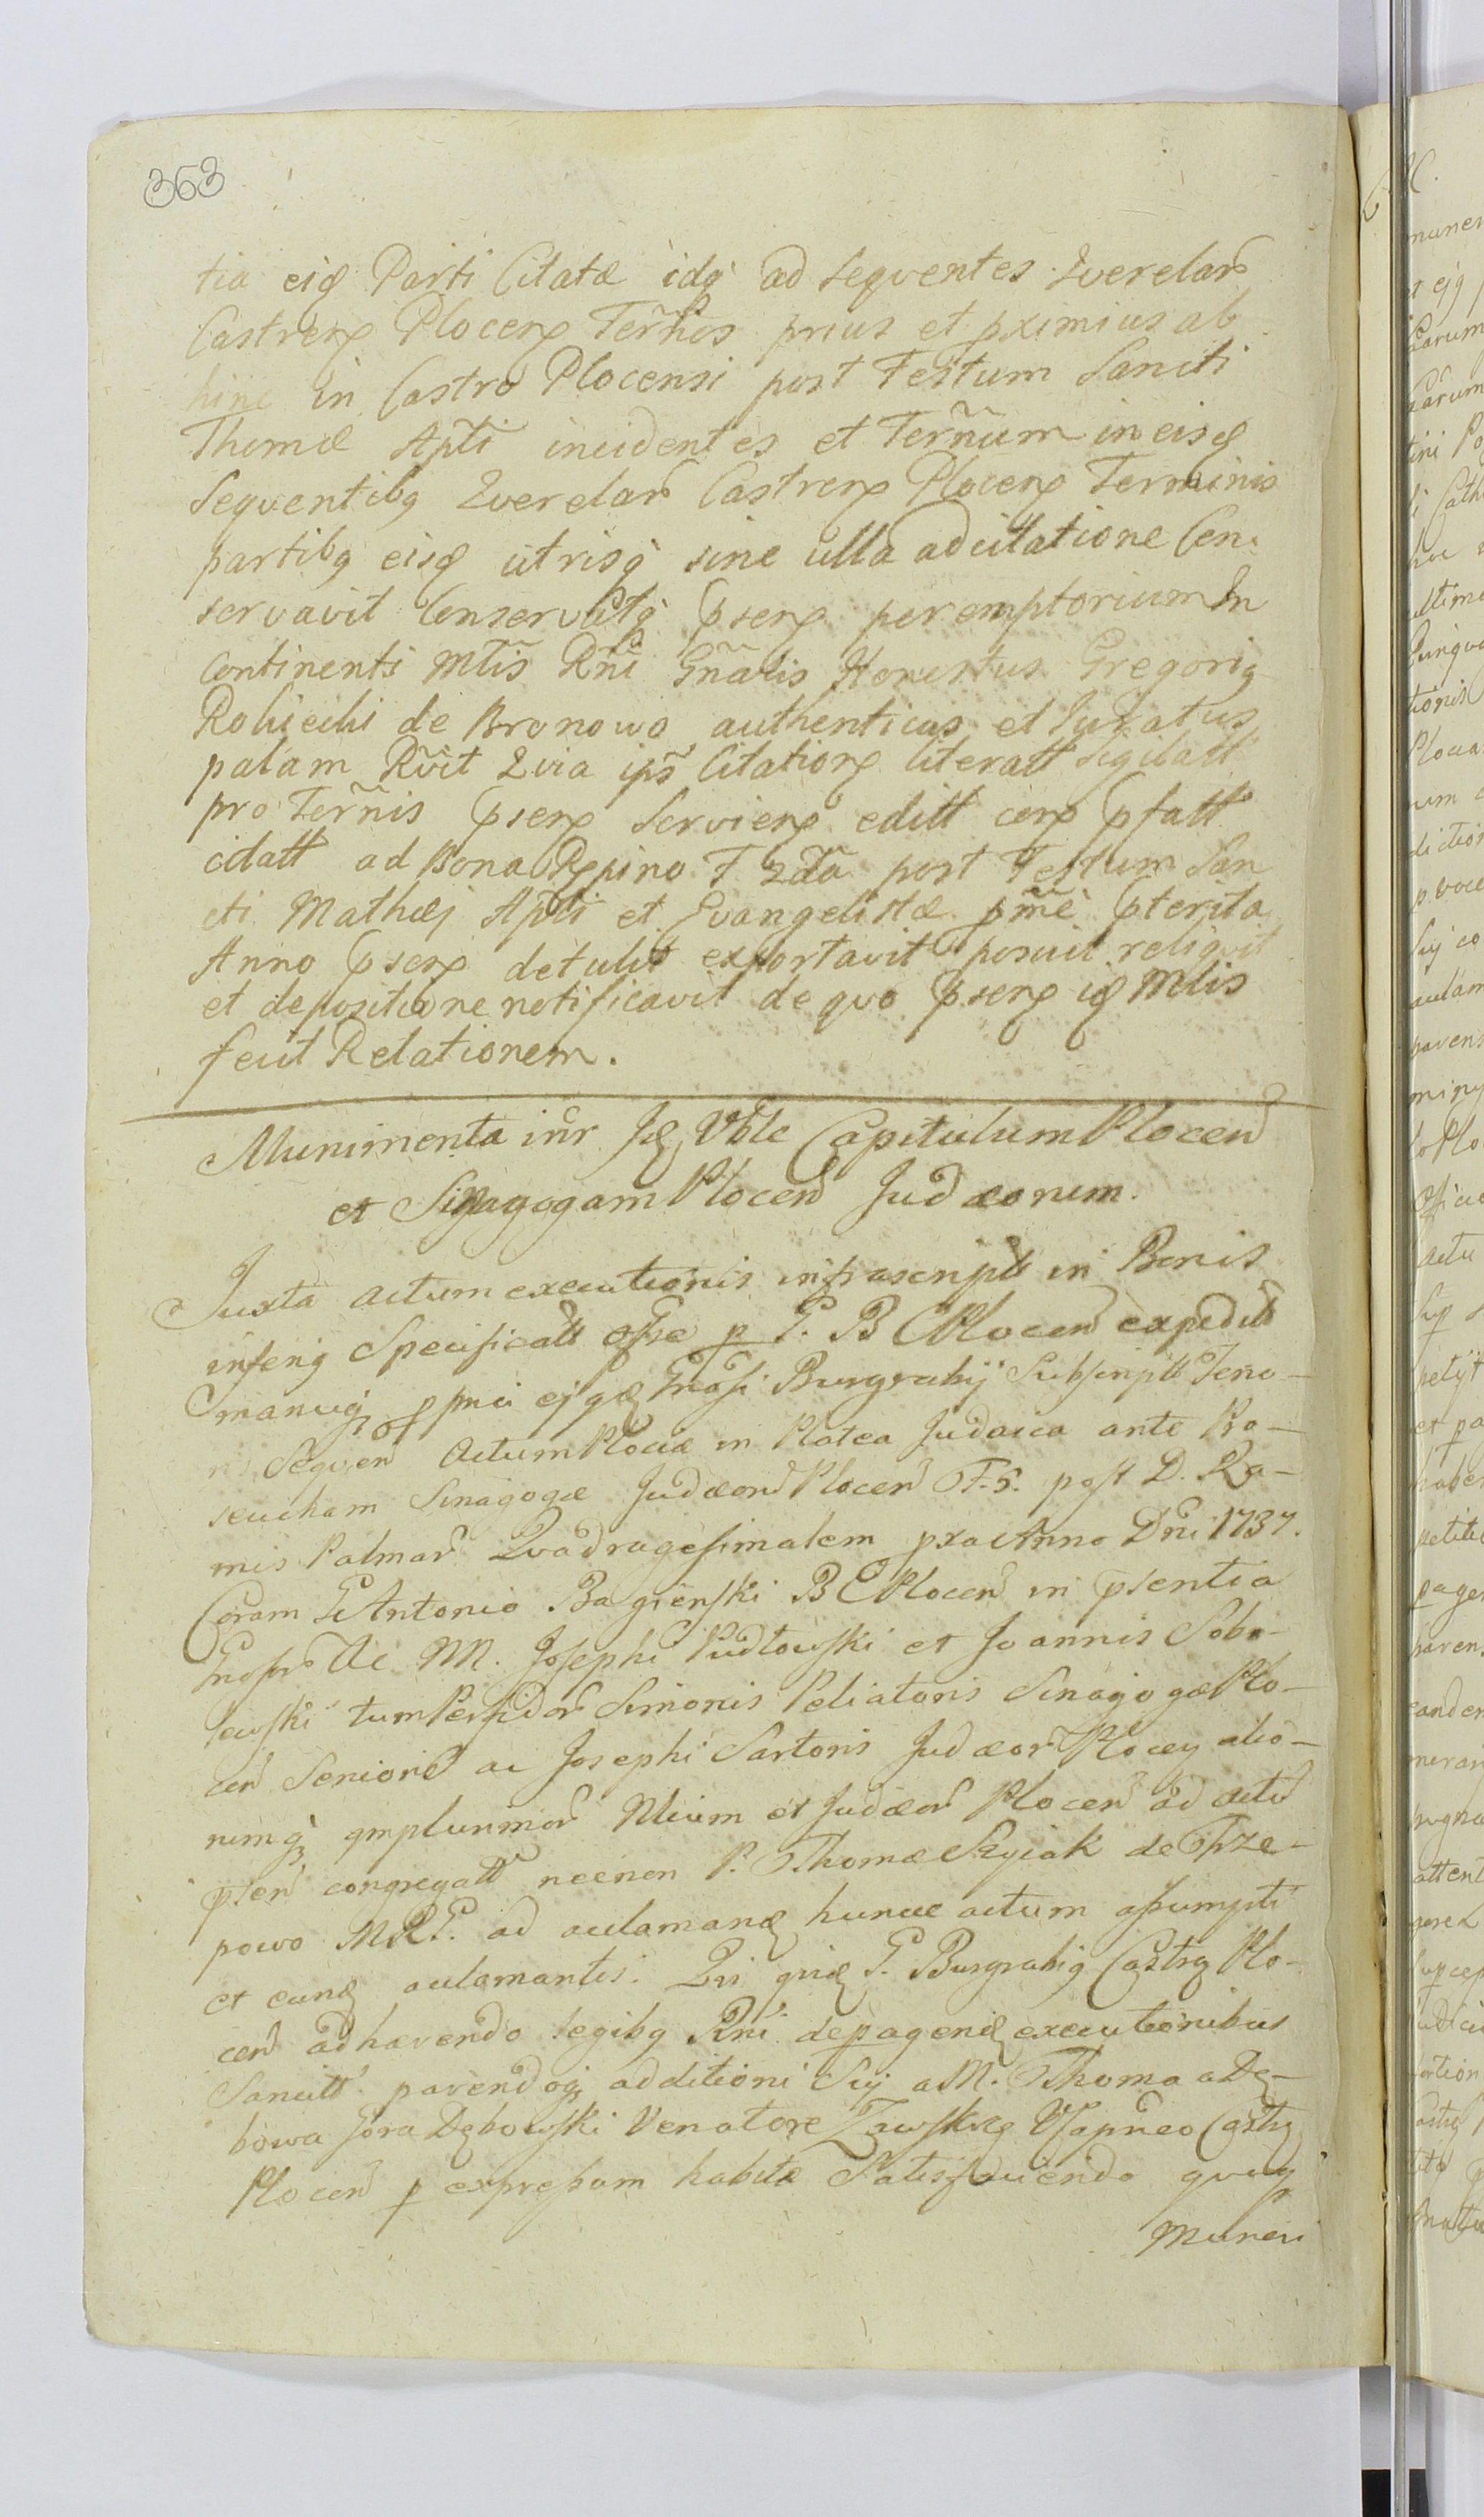 363
tia eisd Parti Citatae idq ad sequentes Querelar
Castren Plocen Termnos prius et pximius ab
hinc in Castro Plocensi post Festum Sancti
Thomae Apti incidentes et Termnum in eisd
sequentibq Querelar Castren Plocen Terminis
partibq eisd utrisq sine ulla adcitatione Con
servavit Conservatq psens peremptorium In
continenti Mtis Rni Gnalis Honestus Gregoriq
Rokicihi de Bronowo authenticus et Juratus
palam Rvit Quia ips Citation literatt Sigilatt
pro Termnis psens Serviens editt cerp pfatt
citatt ad Bona Rpino F 2da post Festum San
cti Mathaej Apti et Evangelistae pme pterita
Anno psens detulit exportavit posuit reliquit
et depositione notificavit de quo psens id Mtis
fecit Relationem.
Munimenta intr Jll Vble Capitulum Plocen
et Sinagogam Plocen Judaeorum.
Juxta actum executionis infrascriptt in Bonis
inferiq Specificatt offse p G. B C Plocen expeditt
manuq ppria ejqd Gnosi Burgrabij Subscriptt Teno-
ris Sequen Actum Plociae in Platea Judaica ante Bo-
seucham Sinagogae Judaeor Plocen F. 5. post D. Ra-
mis Palmar Quadragesimalem pxa Anno Dni 1737.
Coram G Antonio Bagienski B C Plocen in psentia
Gnosr Ac M. Josephi Pudłowski et Joannis Sobo-
lewski tum Perfidor Simonis Peliatoris Sinagogae Plo-
cen Senioris ac Josephi Sartoris Judaeor Plocen alio-
rumq qmplurimor Nlium et Judaeor Plocen ad actu
psen congregatt necnon P. Thomae Szyiak de Trze-
powo M R G. ad aclamand huncce actum assumpti
et eund aclamantis. Qui quid G. Burgrabiq Castrq Plo-
cen adhaerendo legibq Rni de pagend executionibus
Sancitt. parendoq additioni Suj a M. Thoma a De-
bowa Góra Dębowski Venatore Zawskrz VCapneo Castrq
Plocen p expressam habitae Satisfaciendo quoq
Muneri